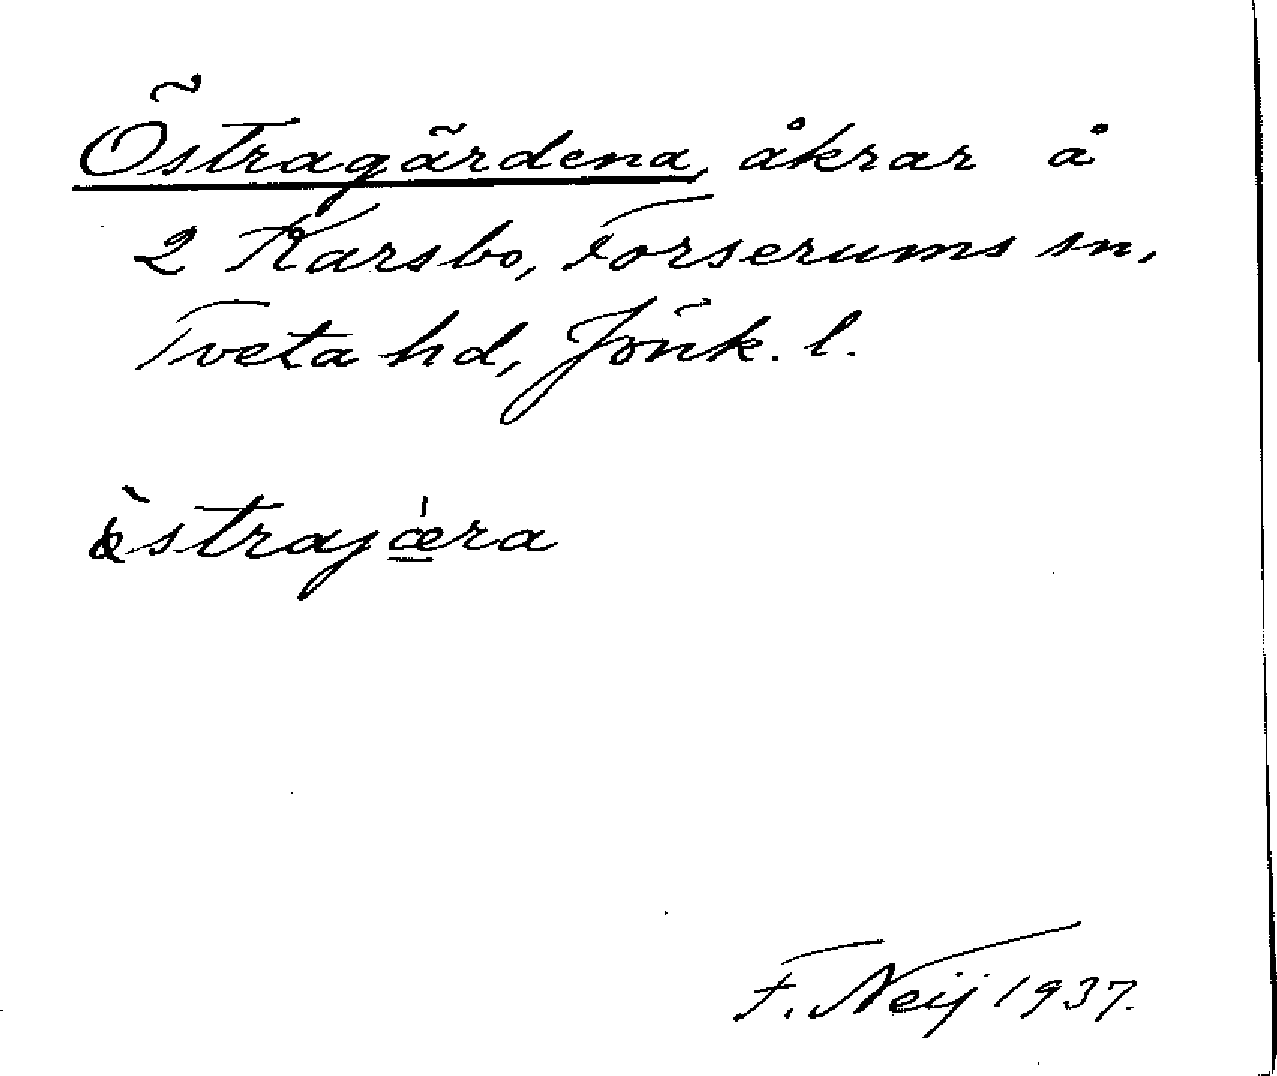 Östragärdena, åkrar å
2 Karsbo, Forserums sn,
Tveta hd, Jönk. l.
ὸstrajǽra
F. Neij 1937.